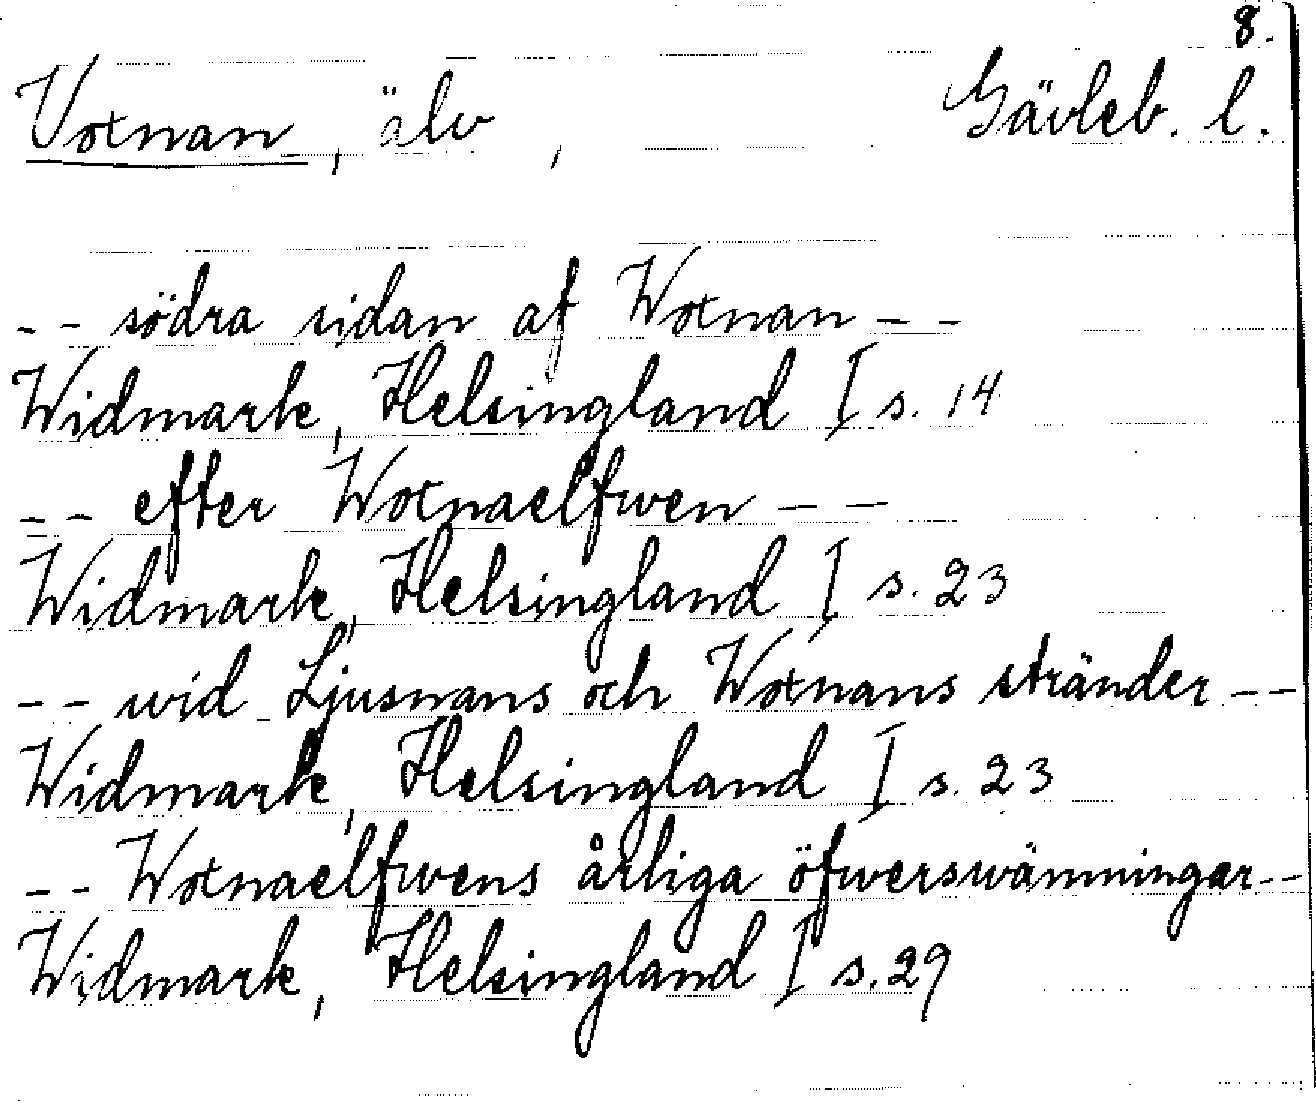 8.
Voxnan, älv, Gävleb. l.
-- södra sidan af Woxnan --
Widmark, Helsingland I s. 14
-- efter Woxnaelfwen --
Widmark, Helsingland I s. 23
-- wid Ljusnans och Woxnans stränder --
Widmark, Helsingland I s. 23
-- Woxnaelfwens årliga öfwerswämningar --
Widmark, Helsingland I s. 29